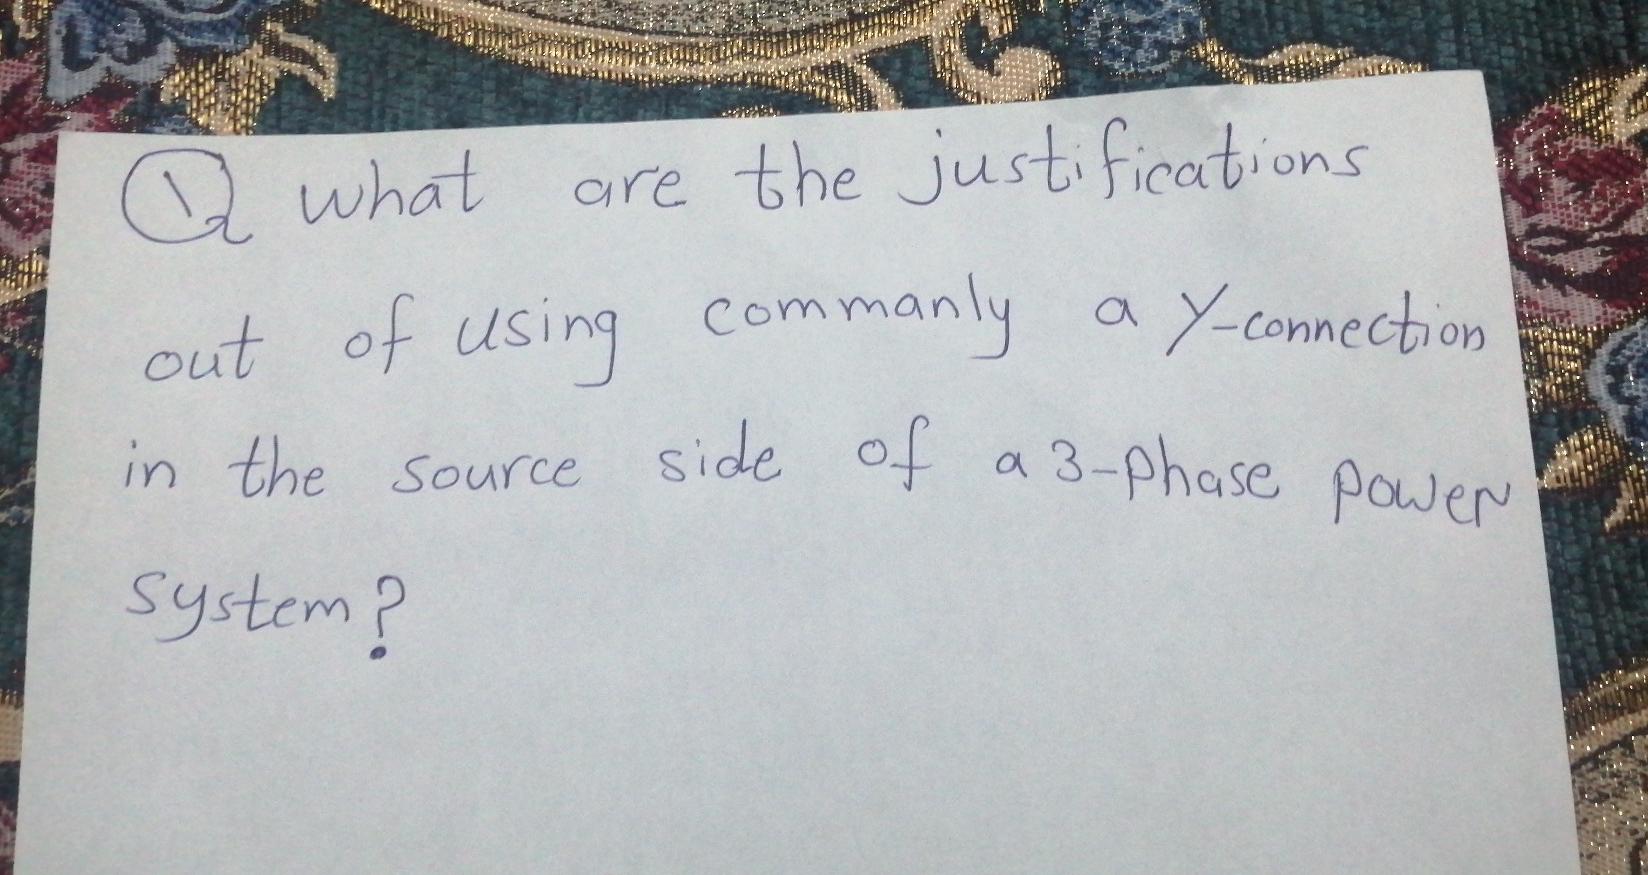 Q what are the justifications
out of using commanly a Y-connection
in the source side of a 3-phase power
system?